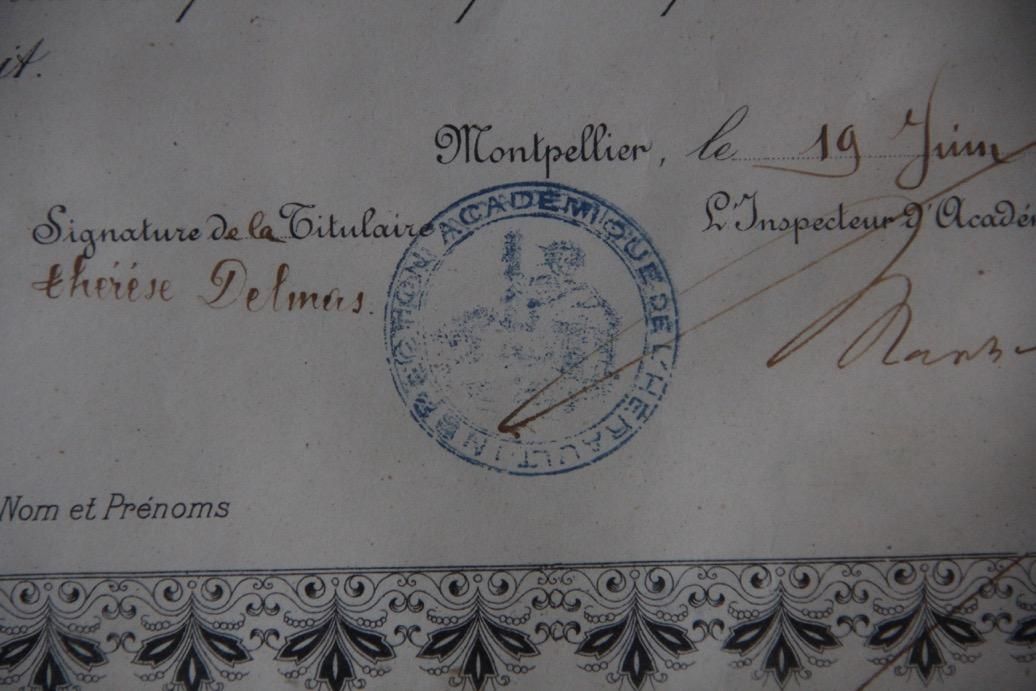 it.
Montpellier, le 19 Juin
Signature de la Titulaire
thérèse Delmas.
L'Inspecteur d'Acadé
INSPECTION ACADÉMIQUE DE L'HÉRAULT
Nom et Prénoms